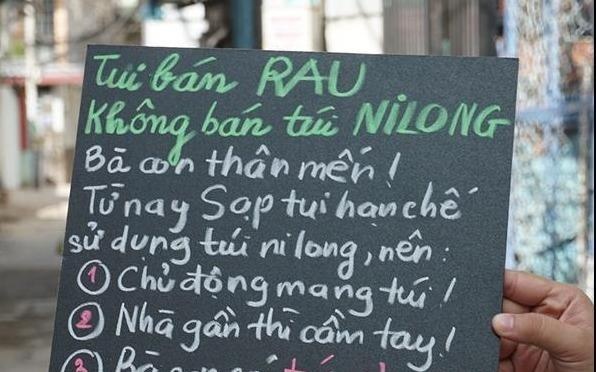 Tui bán RAU
Không bán túi NILONG
Bà con thân mến!
Từ nay Sạp tui hạn chế
sử dụng túi ni long, nên:
① Chủ động mang túi!
② Nhà gần thì cầm tay!
③ Bà con